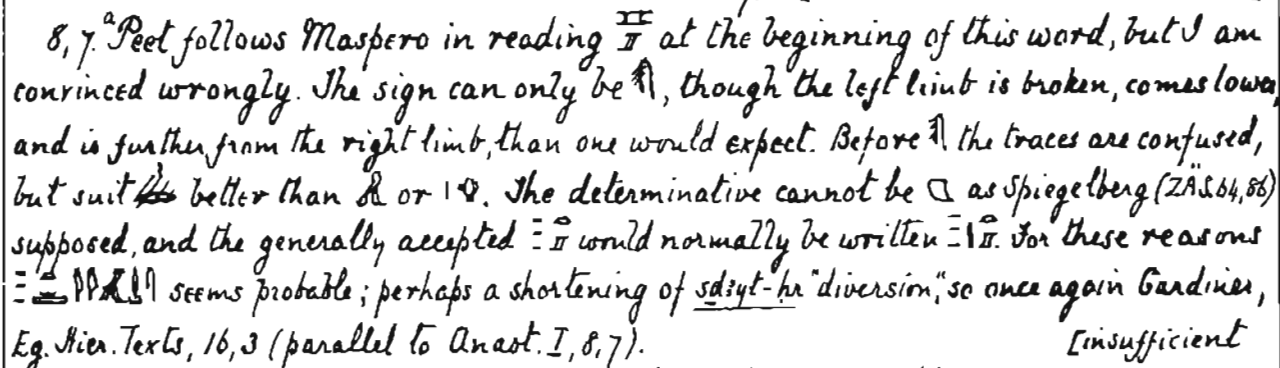 8,7.ᵃ Peet follows Maspero in reading at the beginning of this word, but I am
convinced wrongly. The sign can only be , though the left limb is broken, comes lower,
and is further from the right limb, than one would expect. Before the traces are confused,
but suit better than or . The determinative cannot be as Spiegelberg (ZÄS.64,86)
supposed, and the generally accepted would normally be written . For these reasons
seems probable; perhaps a shortening of sḏꜣyt-ḥr "diversion", so once again Gardiner,
Eg. Hier. Texts, 16,3 (parallel to Anast. I, 8,7). [insufficient